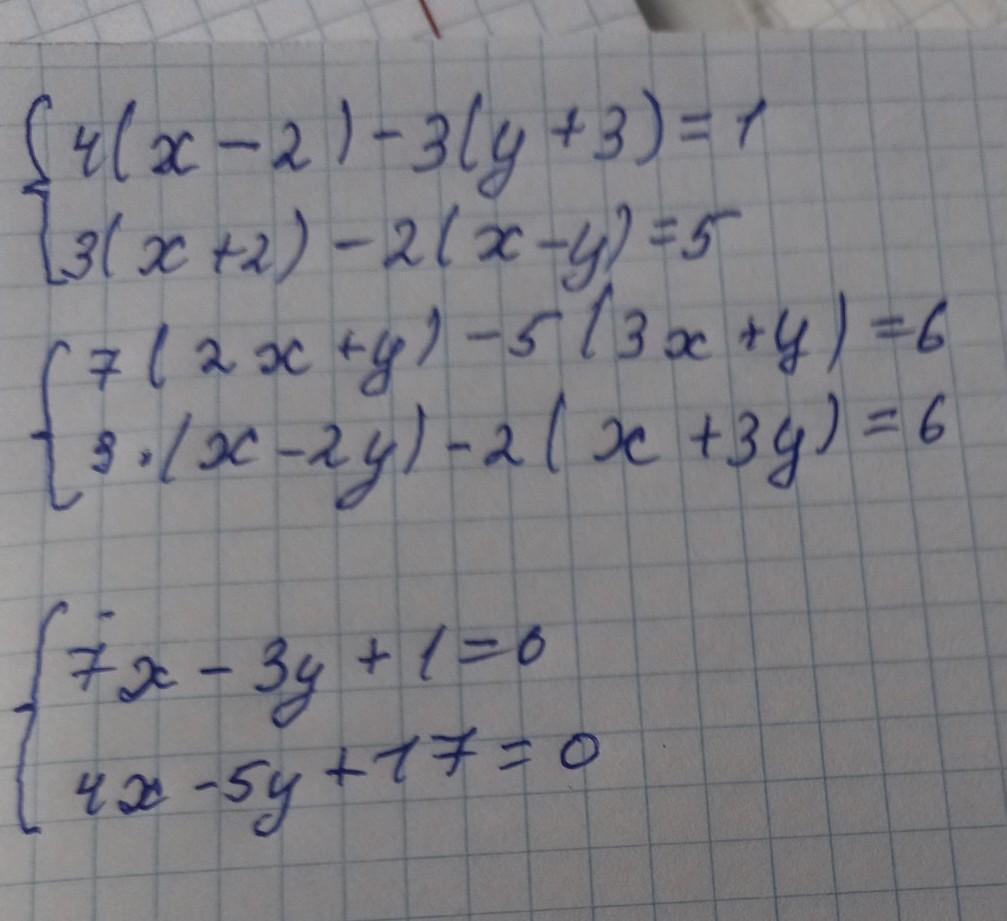 4(x-2)-3(y+3)=1
3(x+2)-2(x-y)=5
7(2x+y)-5(3x+y)=6
3·(x-2y)-2(x+3y)=6
7x-3y+1=0
4x-5y+17=0